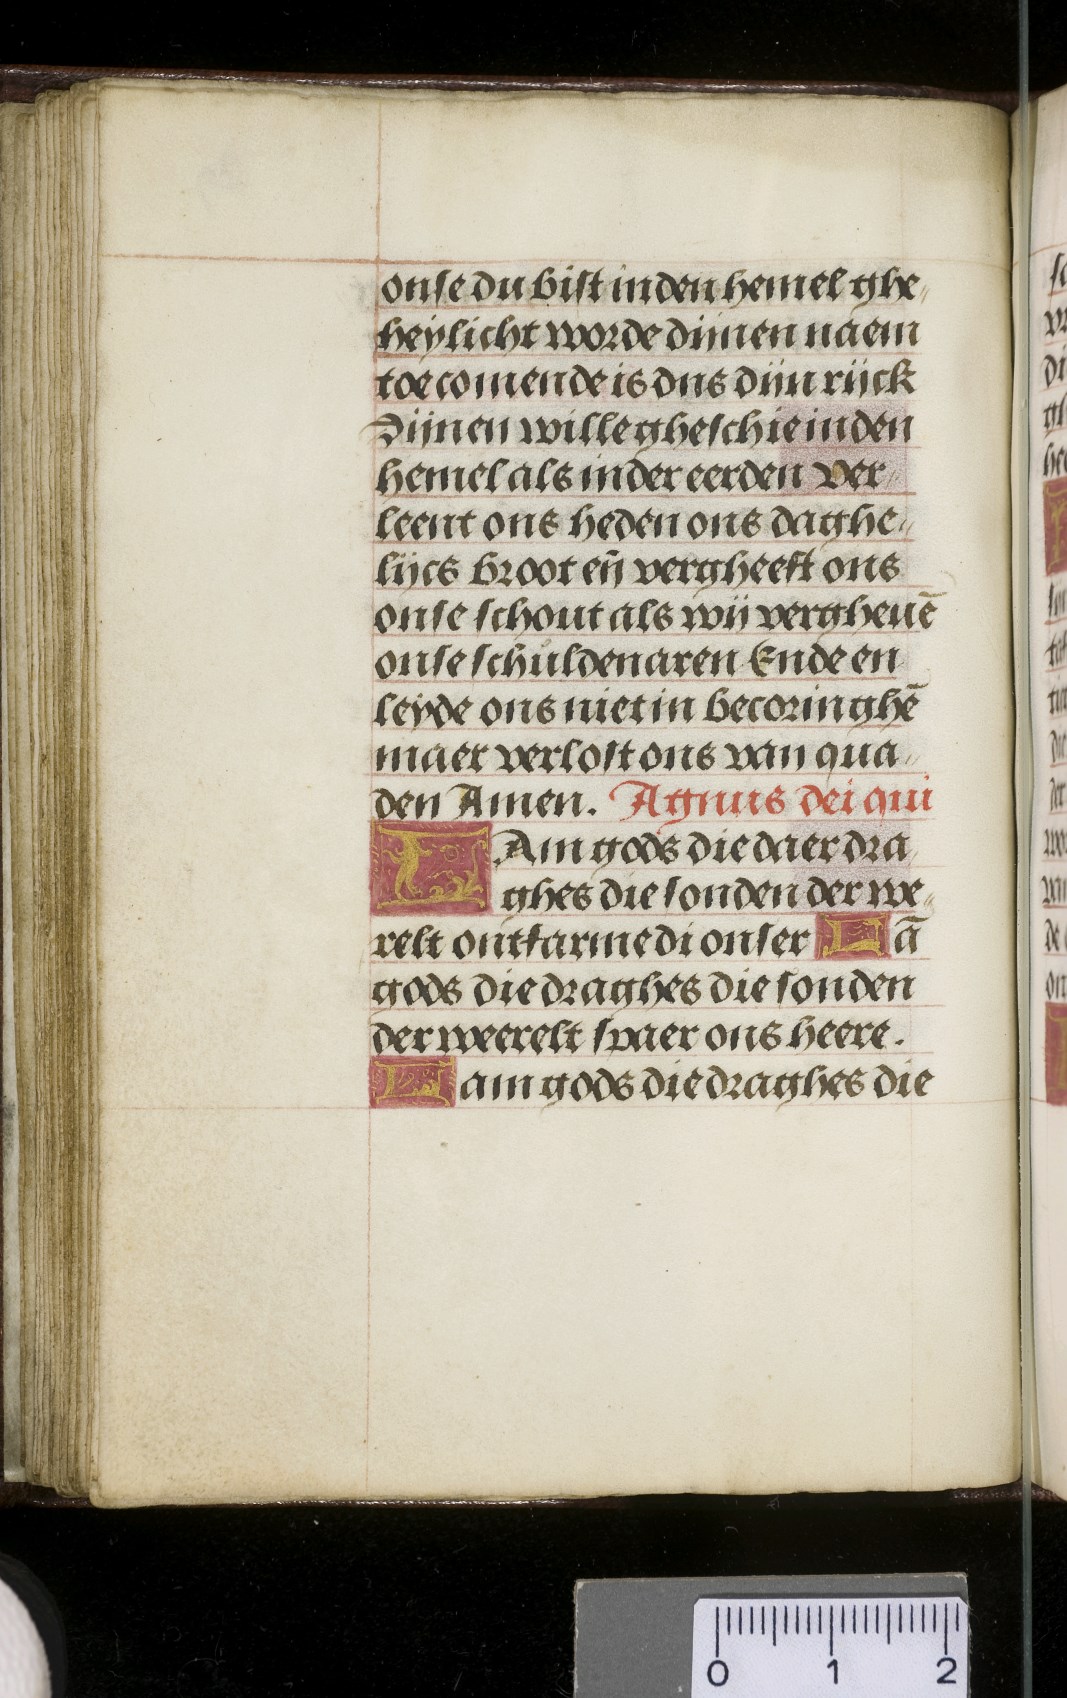 onse du bist in den hemel ghe„
heylicht worde dijnen naem
toecomende is dns dijn rijck
Dijnen wille gheschie in den
hemel als in der eerden Ver„
leent ons heden ons daghe„
lijcs broot eñ vergheeft ons
onse schout als wij vergheuē
onse schuldenaren Ende en
leyde ons niet in becoringhē
maer verlost ons van qua„
den Amen. Agnus dei qui
LAm gods die daer dra„
ghes die sonden der we„
relt ontfarme di onser Lā
gods die draghes die sonden
der weerelt spaer ons heere.
Lam gods die draghes die
0 1 2